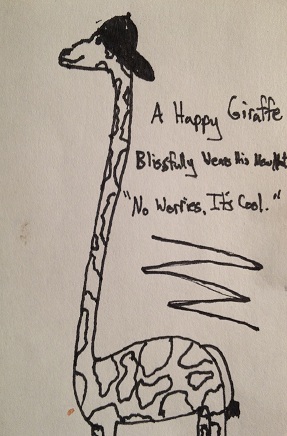 A Happy Giraffe
Blissfully Views his
"No Worries, It's Cool."